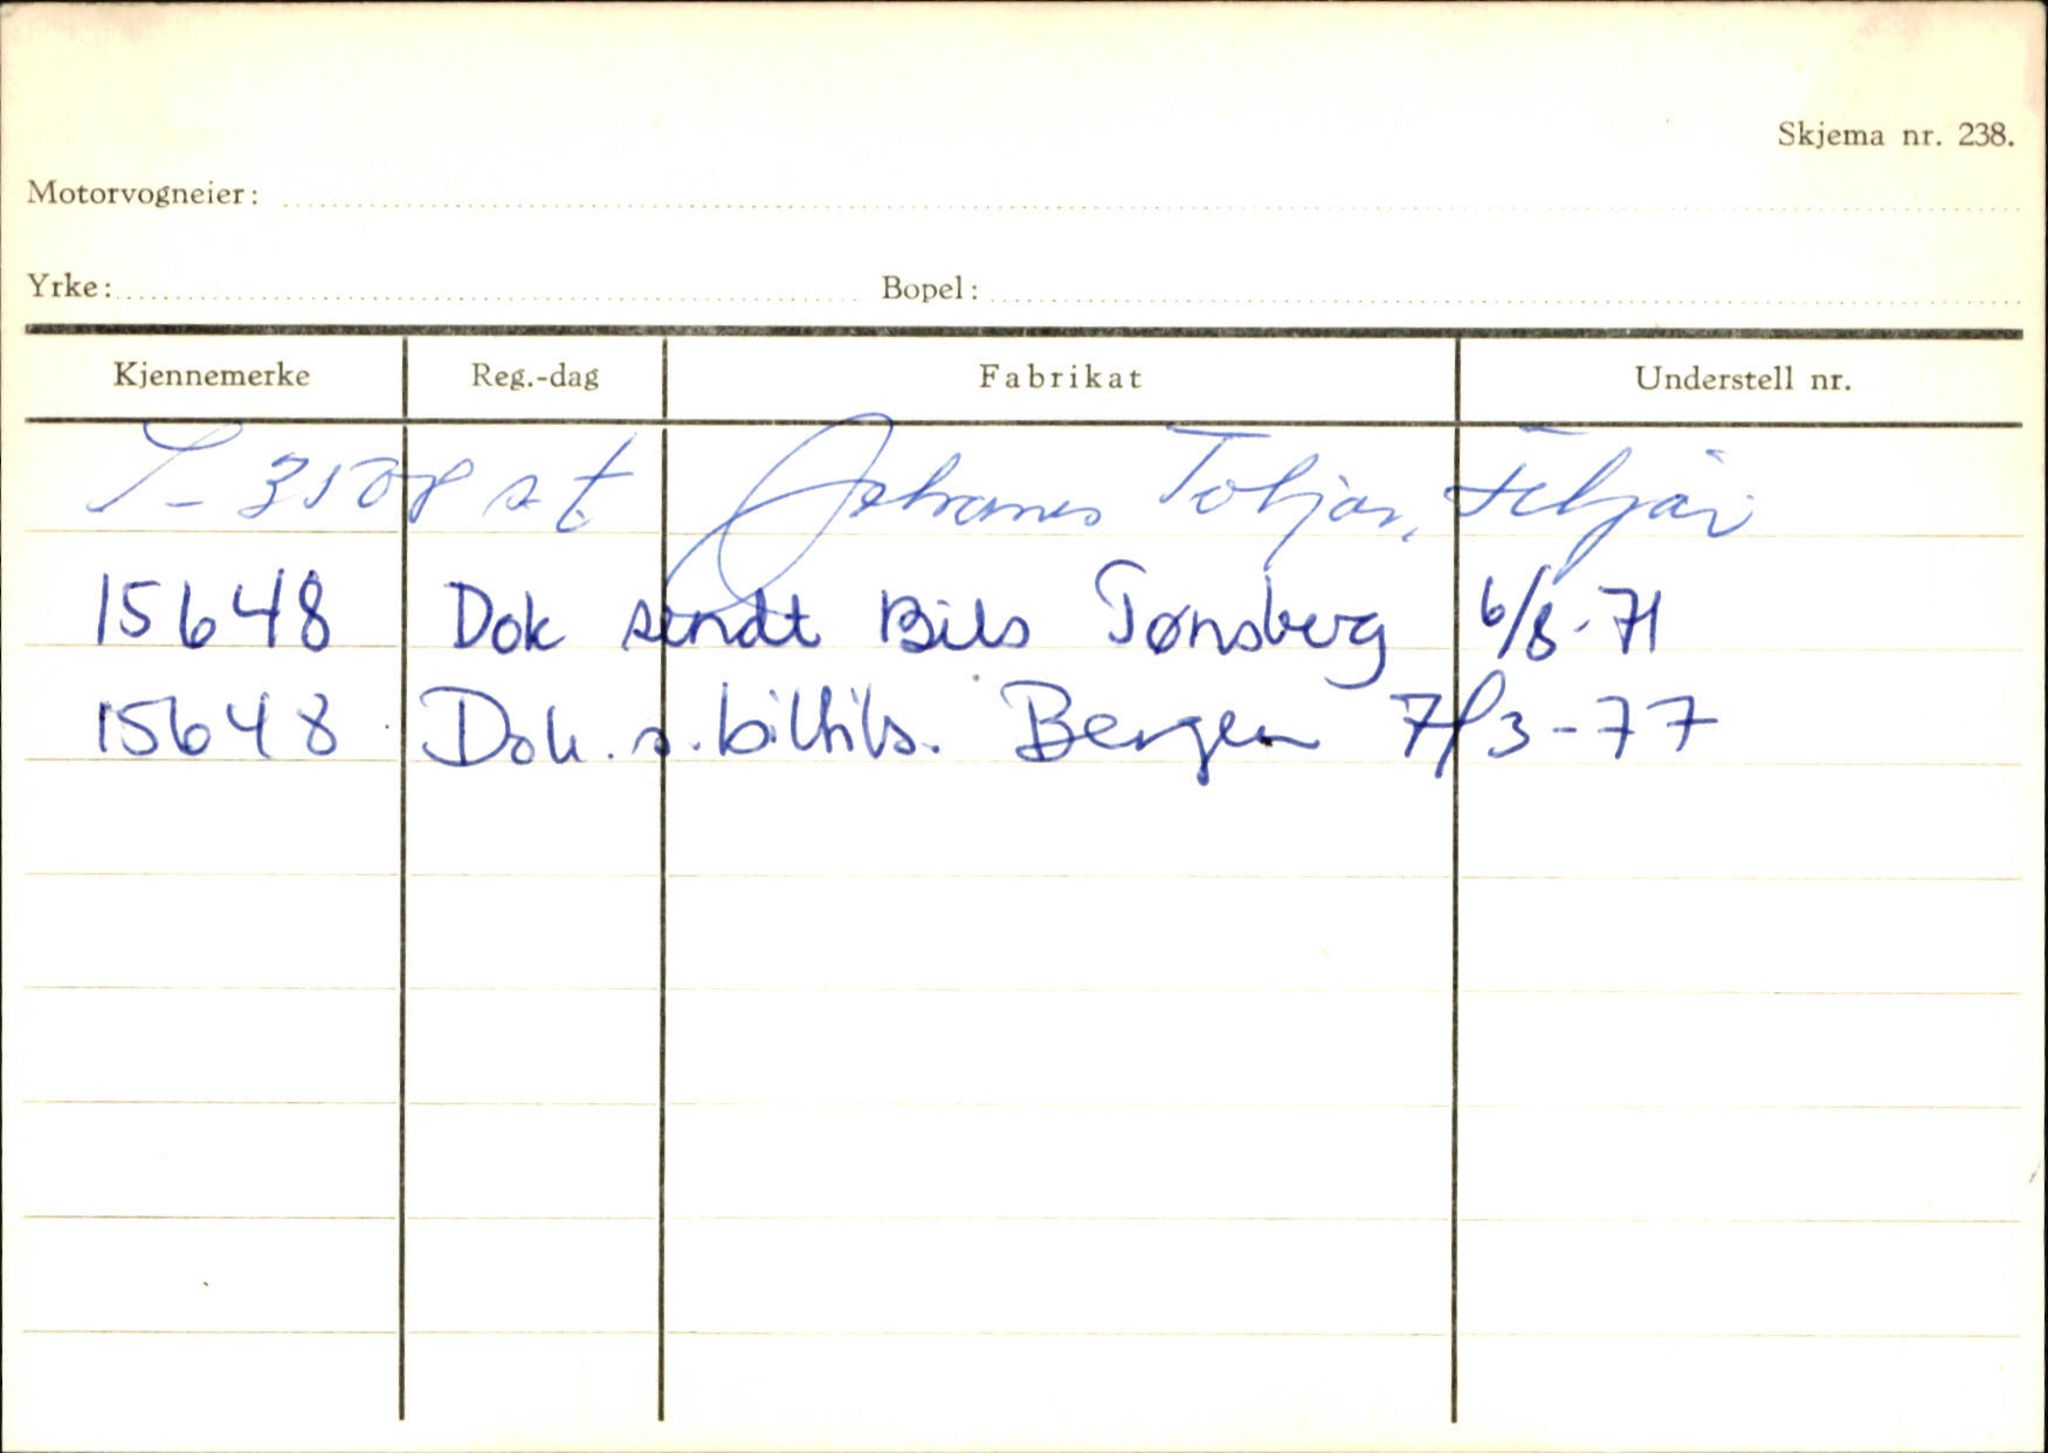 Skjema nr. 238.
Motorvogneier:
Yrke: Bopel:
Kjennemerke Reg.-dag Fabrikat Understell nr.
S-3508 s.t. Johannes
15648 Dok sendt Bils Tønsberg 6/8-71
15648 Dok. s. biltils. Bergen 7/3-77